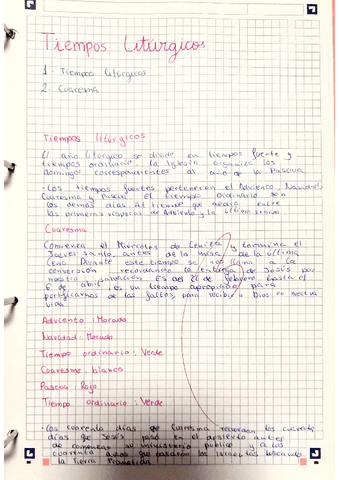 Tiempos Litúrgicos
1- Tiempos Litúrgicos
2- Cuaresma
Tiempos litúrgicos
El año litúrgico se divide en tiempos fuerte y
tiempos ordinario. La Iglesia organiza los
domingo correspondientes al año de la Pascua
• Los tiempos fuertes pertenecen el Adviento, Navidad,
Cuaresma y Pascua. El tiempo ordinario son
los demás días. Al tiempo que media entre
las primeras vísperas de Adviento y la última semana
Cuaresma
Comienza el Miércoles de Ceniza y termina el
Jueves santo, antes de la misa de la última
Cena. Durante este tiempo se nos llama a la
conversión recordando la entrega de Jesús por
nuestra salvación. Es del 22 de febrero hasta el
6 de abril. es un tiempo apropiado para
purificarnos de las faltas, para recibir a Dios en nuestra
vida
Adviento: Morado
Navidad: Morado
Tiempo ordinario: Verde
Cuaresma. blanco
Pascua Rojo
Tiempo ordinario: Verde
• Los cuarenta días de Cuaresma recuerdan los cuarenta
días que Jesús pasó en el desierto antes
de comenzar su ministerio público y a los
cuarenta años que pasaron los israelitas buscando
la tierra Prometida